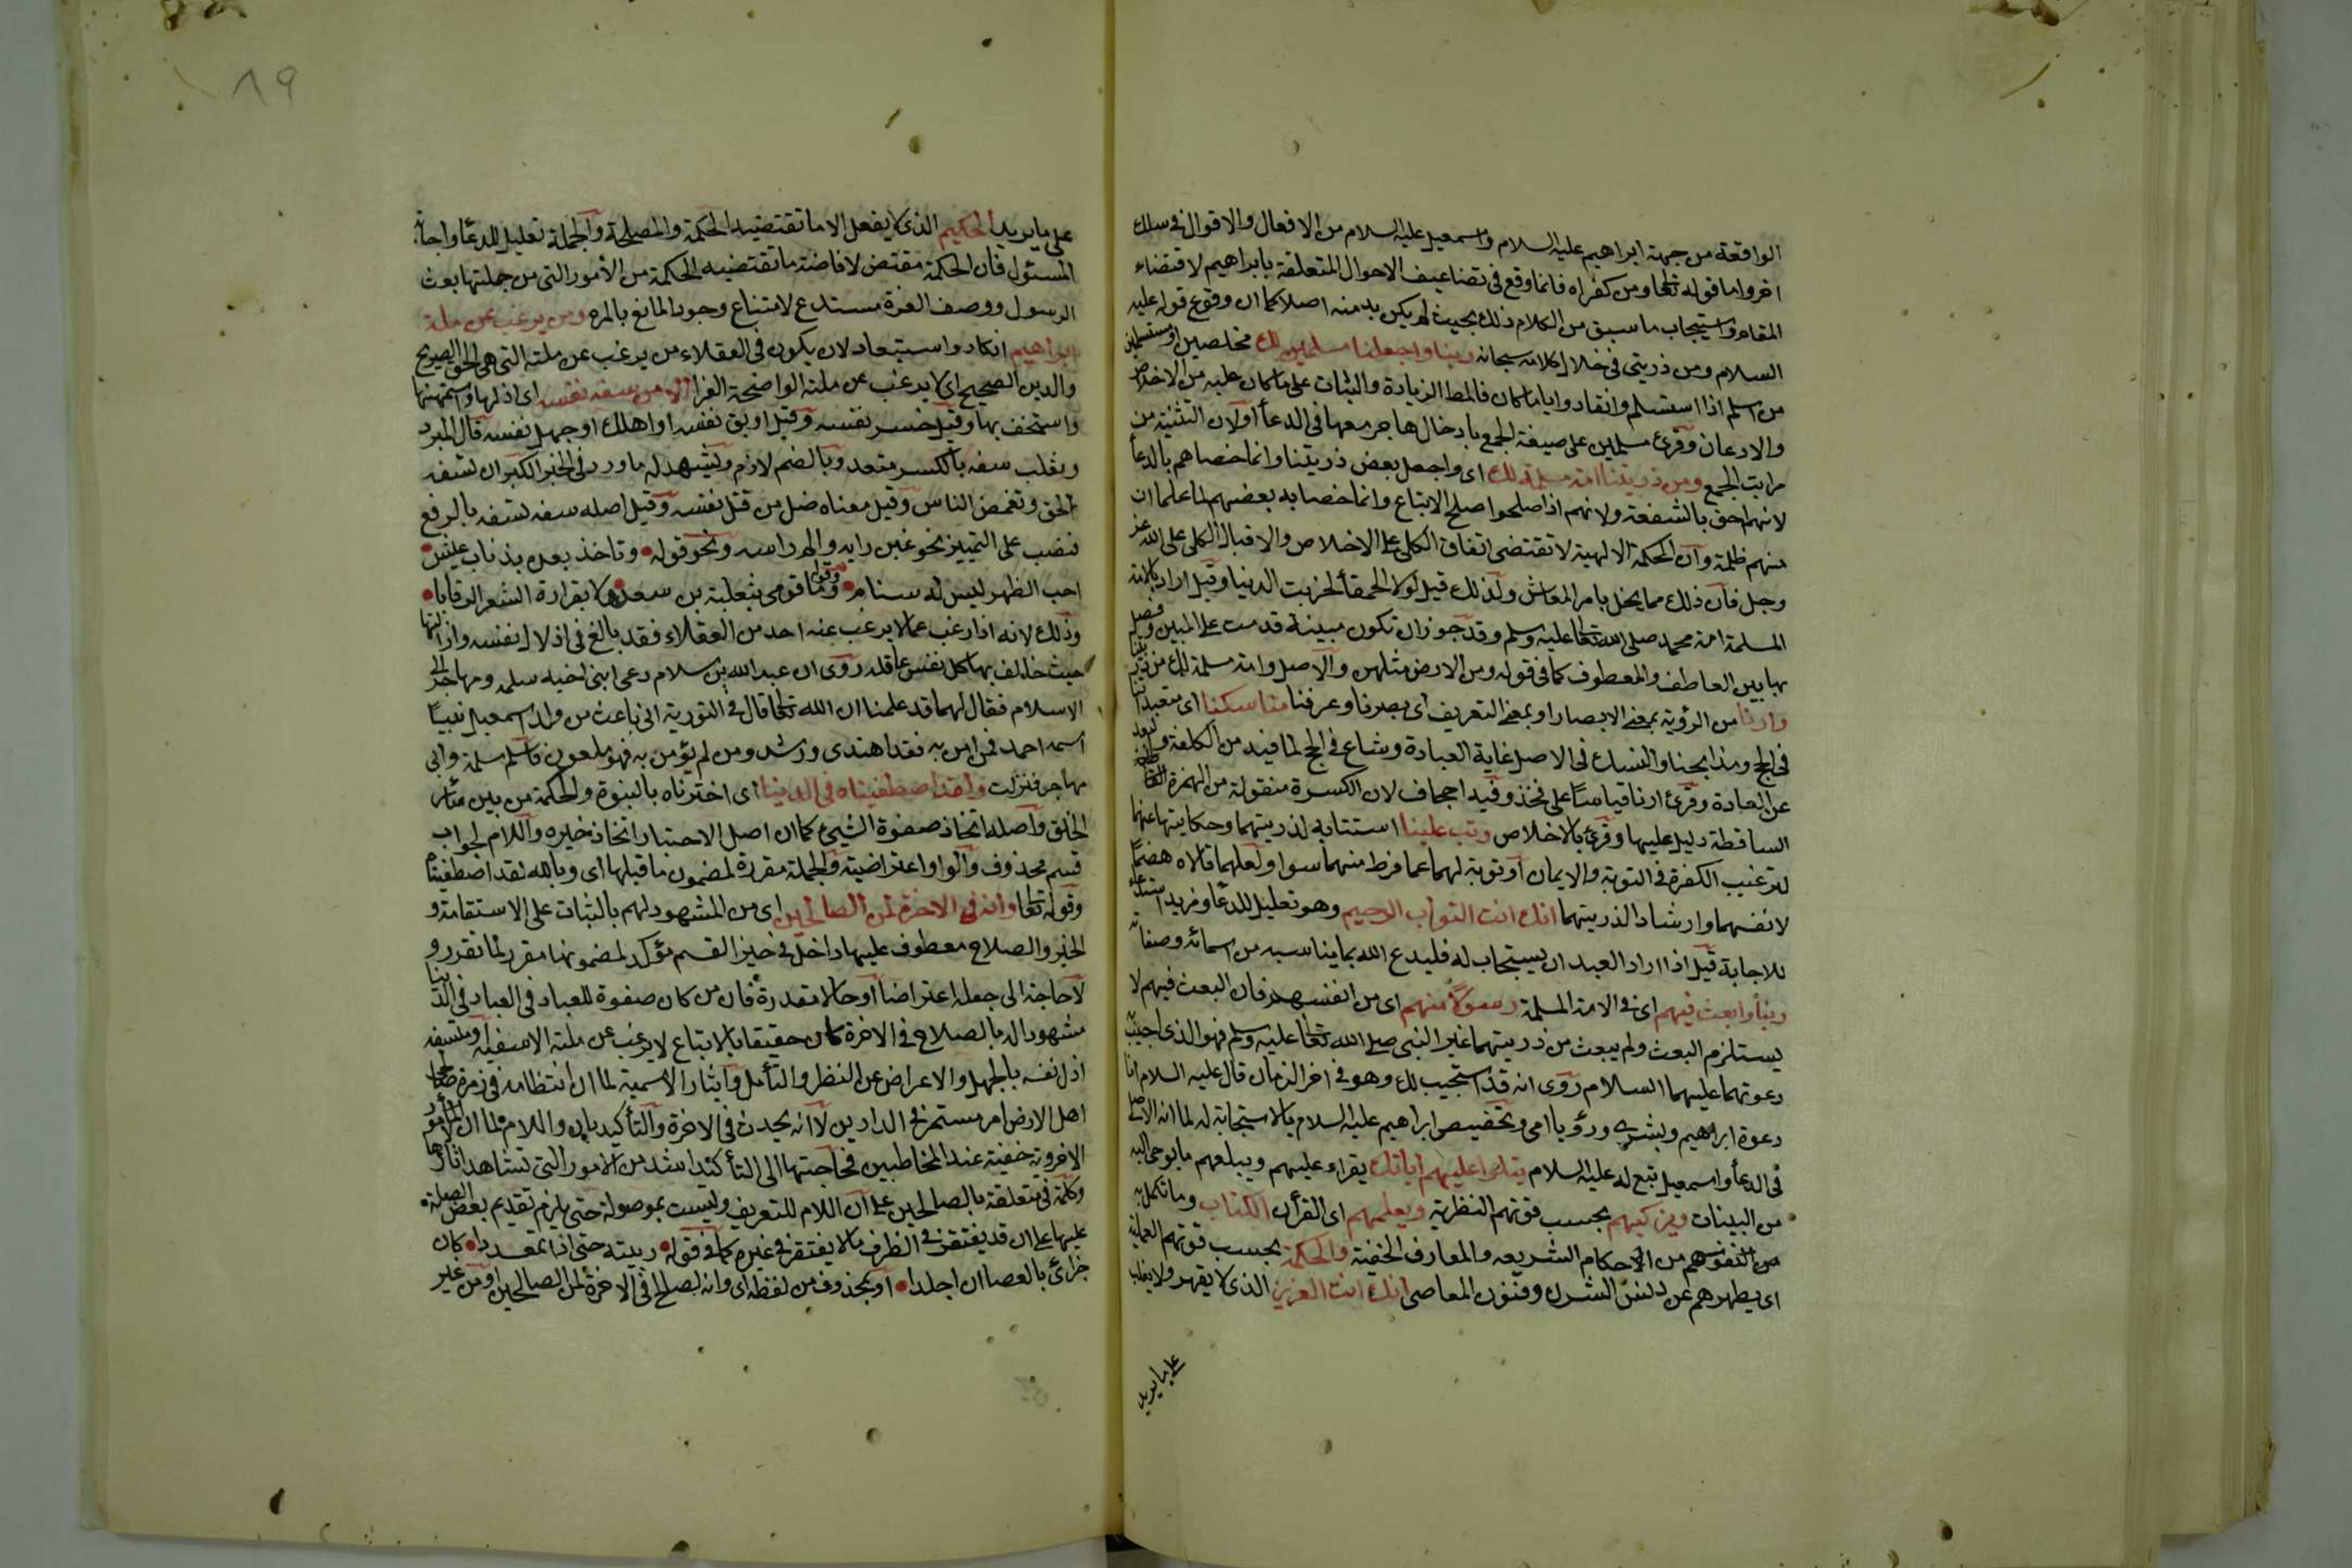 الواقعة من جهة ابراهيم عليه السلام واسمعيل عليه السلام من الافعال والاقوال في سلك
اخر واما قوله تعالى ومن كفر اه فانما وقع في تضاعيف الاحوال المتعلقة بابراهيم لاقتضاء
المقام واستيجاب ما سبق من الكلام ذلك بحيث لم يكن بد منه اصلا كما ان وقوع قوله عليه
السلام ومن ذريتي في خلال كلامه سبحانه ربنا واجعلنا مسلمين لك مخلصين او مستسلمين
من اسلم اذا استسلم وانقاد وايا ما كان فالمط الزيادة والثبات على ما كان عليه من الاخلاص
والاذعان وقرئ مسلمين على صيغة الجمع بادخال هاجر معهما في الدعأ اولان التثنية من
مراتب الجمع ومن ذريتنا امة مسلمة لك اى واجعل بعض ذريتنا وانما خصاهم بالدعأ
لانهم احق بالشفقة ولانهم اذا صلحوا صلح الاتباع وانما خصا به بعضهم لما علما ان
منهم ظلمة وان الحكمة الالهية لا تقتضى اتفاق الكلى على الاخلاص والاقبال الكلى على الله عز
وجل فان ذلك مما يخل بامر المعاش ولذلك قيل لولا الحمقأ لخربت الدنيا وقيل اراد بالامة
المسلمة امة محمد صلى الله تعالى عليه وسلم وقد جوز ان تكون مبينة قدمت على المبين وفصل
بها بين العاطف والمعطوف كما في قوله ومن الارض مثلهن والاصل وامة مسلمة لك من ذريتنا
وارنا من الرؤية بمعنى الابصار او بمعنى التعريف اى بصرنا وعرفنا مناسكنا اى متعبداتنا
في الحج ومذابحنا والنسك في الاصل غاية العبادة وشاع في الحج لما فيه من الكلفة والبعد
عن العادة وقرئ ارنا قياسا على فخذ وفيه اجحاف لان الكسرة منقولة من الهمزة
الساقطة دليل عليها وقرئ بالاختلاس وتب علينا استتابة لذريتهما وحكايتها عنهما
لترغيب الكفرة في التوبة والايمان او توبة لهما عما فرط منهما سهوا ولعلهما قالاه هضما
لانفسهما وارشادا لذريتهما انك انت التواب الرحيم وهو تعليل للدعأ ومزيد استدعأ
للاجابة قيل اذا اراد العبد ان يستجاب له فليدع الله بما يناسبه من اسمائه وصفاته
ربنا وابعث فيهم اى في الامة المسلمة رسولا منهم اى من انفسهم فان البعث فيهم لا
يستلزم البعث ولم يبعث من ذريتهما غير النبى صلى الله تعالى عليه وسلم فهو الذى اجيب به
دعوتهما عليهما السلام روى انه قد استجيب لك وهو في اخر الزمان قال عليه السلام انا
دعوة ابراهيم وبشرى ورؤيا امى وتخصيص ابراهيم عليه السلام بالاستجابة له لما انه الاصل
في الدعأ واسمعيل تبع له عليه السلام يتلوا عليهم اياتك يقراء عليهم ويبلغهم ما يوحى اليه
من البينات ويزكيهم بحسب قوتهم النظرية ويعلمهم اى القرأن الكتاب وما تكمل به
من نفوسهم من الاحكام الشريعه والمعارف الخفية والحكمة بحسب قوتهم العملية
اى يطهرهم عن دنس الشرك وفنون المعاصى انك انت العزيز الذى لا يقهر ولا يغلب
على ما يريد
٨٩
على ما يريد الحكيم الذى لا يفعل الا ما تقتضيه الحكمة والمصلحة والجملة تعليل للدعأ واجابة
المسئول فان الحكمة مقتض لافاضة ما تقتضيه الحكمة من الأمور التى من جملتها بعث
الرسول ووصف العزة مستدع لامتناع وجود المانع بالمرة ومن يرغب عن ملة
ابراهيم انكار واستبعاد لان يكون في العقلاء من يرغب عن ملته التى هي الحق الصريح
والدين الصحيح اى لا يرغب عن ملته الواضحة الغرأ الا من سفه نفسه اى اذلها واستمهنها
واستخف بها وقيل خسر نفسه وقيل اوبق نفسه او اهلك او جهل نفسه قال المبرد
وثعلب سفه بالكسر متعد وبالضم لازم ويشهد له ما ورد في الخبر الكبر ان تسفه
الحق وتغمض الناس وقيل معناه ضل من قبل نفسه وقيل اصله سفه نفسه بالرفع
فنصب على التمييز نحو غبن رايه والم راسه ونحو قوله وتاخذ بعده بذناب عيش
اجب الظهر ليس له سنام وقوله وما قومى بثعلبة بن سعد ولا بفزارة الشعر الرقابا
وذلك لانه اذا رغب عما لا يرغب عنه احد من العقلاء فقد بالغ في اذلال نفسه واذالتها
حيث خالف بها كل نفس عاقلة روى ان عبد الله بن سلام دعى ابنى اخيه سلمة ومهاجر الى
الاسلام فقال لهما قد علمنا ان الله تعالى قال في التورية انى باعث من ولد اسمعيل نبيا
اسمه احمد فمن امن به فقد اهتدى ورشد ومن لم يؤمن به فهو ملعون فاسلم سلمة وابى
مهاجر فنزلت ولقد اصطفيناه في الدنيا اى اخترناه بالنبوة والحكمة من بين سائر
الخلق واصله اتخاذ صفوة الشيئ كما ان اصل الاختيار اتخاذ خيره واللام لجواب
قسم محذوف والواو اعتراضية والجملة مقررة لمضمون ما قبلها اى وبالله لقد اصطفيناه
وقوله تعالى وانه في الاخرة لمن الصالحين اى من المشهود لهم بالثبات على الاستقامة و
الخير والصلاح معطوف عليها داخل في حيز القسم مؤكد لمضمونها مقرر لما تقرره و
لا حاجة الى جعله اعتراضا او حالا مقدرة فان من كان صفوة للعباد في الدنيا
مشهودا له بالصلاح في الاخرة كان حقيقا بالاتباع لا يرغب عن ملته الا سفيه او متسفه
اذل نفسه بالجهل والاعراض عن النظر والتأمل وايثار الاسمية لما ان انتظامه في زمرة صالحى
اهل الارض امر مستمر في الدارين لا انه يحدث في الاخرة والتأكيد بان واللام لما ان الأمور
الاخروية خفية عند المخاطبين فحاجتها الى التأكيد اشد من الامور التى تشاهد اثارها
وكلمة في متعلقة بالصالحين على ان اللام للتعريف وليست بموصولة حتى يلزم تقديم بعض الصلة
عليها على ان قد يغتفر في الظرف ما لا يغتفر في غيره كما في قوله ربيته حتى اذا تمعددا كان
جزائ بالعصا ان اجلدا او بمحذوف من لفظه اى وانه لصالح في الاخرة لمن الصالحين او من غير